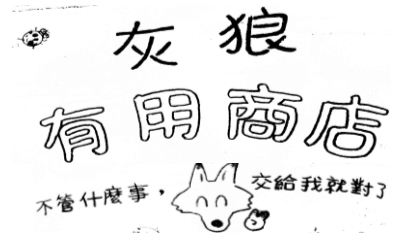 灰狼
有用商店
不管什麼事，交給我就對了